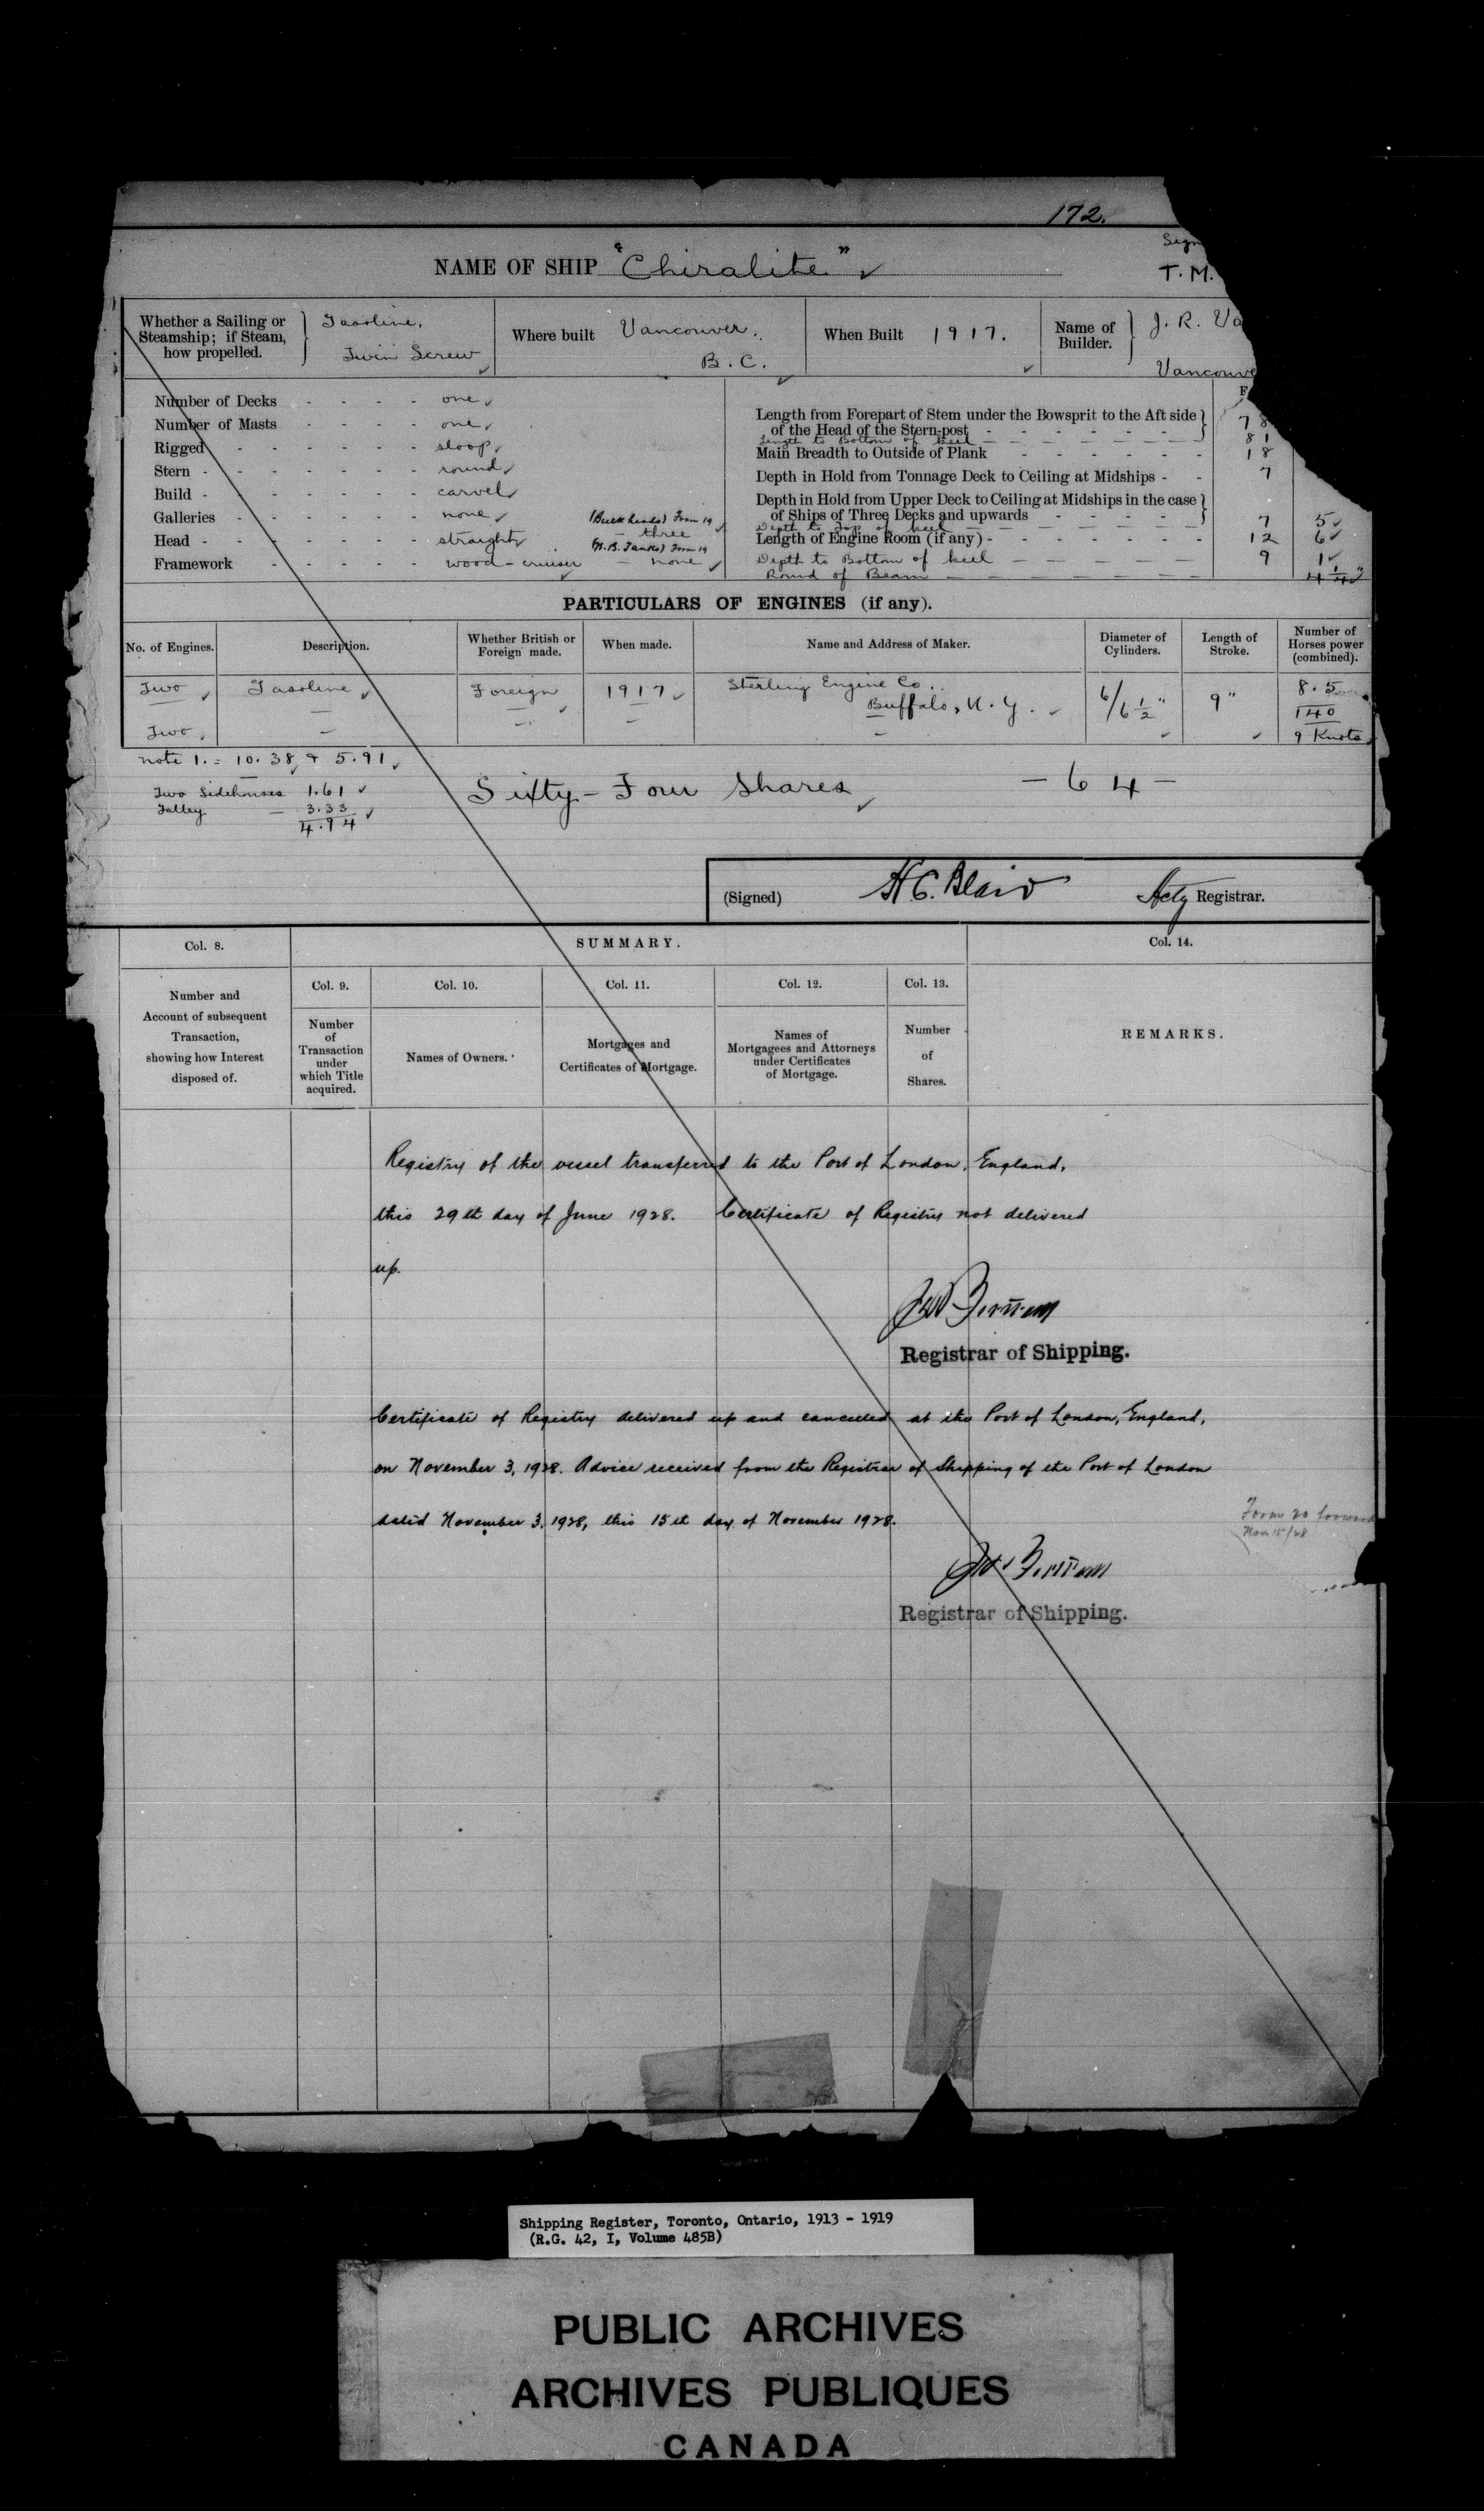 172.
NAME OF SHIP "Chiralite"
T. M.
Whether a Sailing or
Steamship; if Steam,
how propelled.
Gasoline,
Twin Screw
Where built Vancouver.
B. C.
When Built 1917.
Name of
Builder.
J. R. Va
Vancouve
Number of Decks - - - - one
Number of Masts - - - - one
Rigged - - - - - - sloop
Stern - - - - - - - round
Build - - - - - - - carvel
Galleries - - - - - - none
Head - - - - - - - straight
Framework - - - - - wood-cruiser
(Bulkheads) From 19
— three
(W. B. Tanks) From 19
— none
Length from Forepart of Stem under the Bowsprit to the Aft side
of the Head of the Stern-post - - - - - - 78
Length to Bottom of keel 81
Main Breadth to Outside of Plank - - - - - - 18
Depth in Hold from Tonnage Deck to Ceiling at Midships - - 7
Depth in Hold from Upper Deck to Ceiling at Midships in the case
of Ships of Three Decks and upwards - - - -
Depth to Top of keel 7 5
Length of Engine Room (if any) - - - - - - - 12 6
Depth to Bottom of keel 9 1
Round of Beam 4 1/4"
PARTICULARS OF ENGINES (if any).
No. of Engines.
Description.
Whether British or
Foreign made.
When made.
Name and Address of Maker.
Diameter of
Cylinders.
Length of
Stroke.
Number of
Horses power
(combined).
Two Gasoline Foreign 1917 Sterling Engine Co.. 6/6 1/2" 9" 8.5
Buffalo, N. Y. 140
Two. 9 Knots
note 1. = 10.38 & 5.91
Two Sidehouses 1.61
Galley — 3.33
4.94
Sixty-Four Shares — 64 —
(Signed) H C. Blair Actg Registrar.
Col. 8.
SUMMARY.
Col. 14.
Col. 9.
Col. 10.
Col. 11.
Col. 12.
Col. 13.
Number and
Account of subsequent
Transaction,
showing how Interest
disposed of.
Number
of
Transaction
under
which Title
acquired.
Names of Owners.
Mortgages and
Certificates of Mortgage.
Names of
Mortgagees and Attorneys
under Certificates
of Mortgage.
Number
of
Shares.
REMARKS.
Registry of the vessel transferred to the Port of London, England,
this 29th day of June 1928. Certificate of Registry not delivered
up.
Registrar of Shipping.
Certificate of Registry delivered up and cancelled at the Port of London, England,
on November 3, 1928. Advice received from the Registrar of Shipping of the Port of London
dated November 3, 1928, this 15th day of November 1928.
Form 20 forward
Nov 15/28
Registrar of Shipping.
Shipping Register, Toronto, Ontario, 1913 - 1919
(R.G. 42, I, Volume 485B)
PUBLIC ARCHIVES
ARCHIVES PUBLIQUES
CANADA